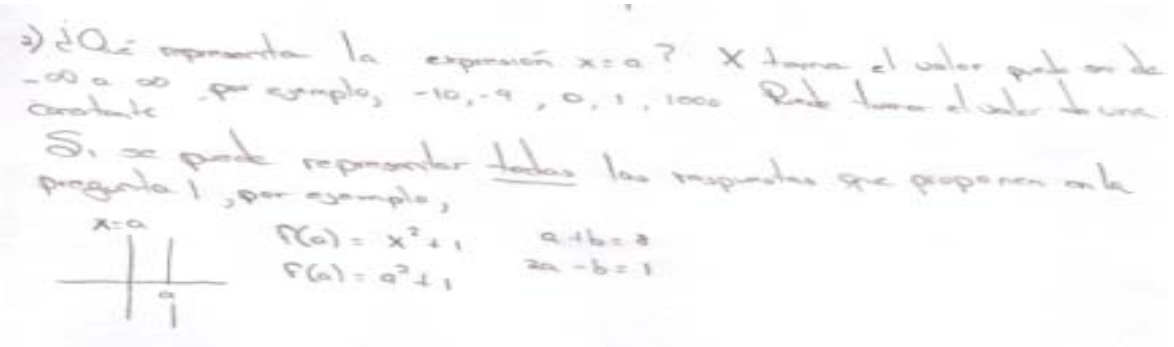 2) ¿Qué representa la expresión x=a? X toma el valor puede ser de
-∞ a ∞ por ejemplo, -10, -9, 0, 1, 1000 Puede tomar el valor de una
constante
Si se puede representar todas las respuestas que proponen en la
pregunta 1, por ejemplo,
x=a
a
f(a) = x²+1
f(a) = a²+1
a+b=
2a-b=1